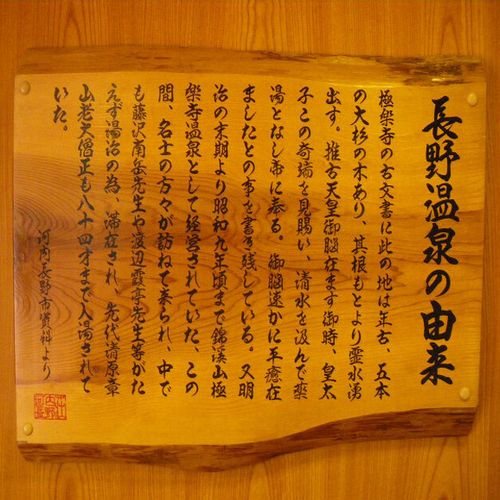 長野温泉の由来
極楽寺の古文書に此の地は年古、五本
の大杉の木あり、其根もとより霊水湧
出す。推古天皇御脳在ます御時、皇太
子この奇端を見賜い、清水を汲んで薬
湯となし帝に奉る。御脳速かに平癒在
ましたとの事を書き残している。又明
治の末期より昭和九年頃まで錦渓山極
楽寺温泉として経営されていた、この
間、名士の方々が訪ねて来られ、中で
も藤沢南岳先生や渡辺霞亭先生等がた
えず湯治の為、滞在され、先代清原章
山老大僧正も八十四才まで入湯されて
いた。
河内長野市資料より